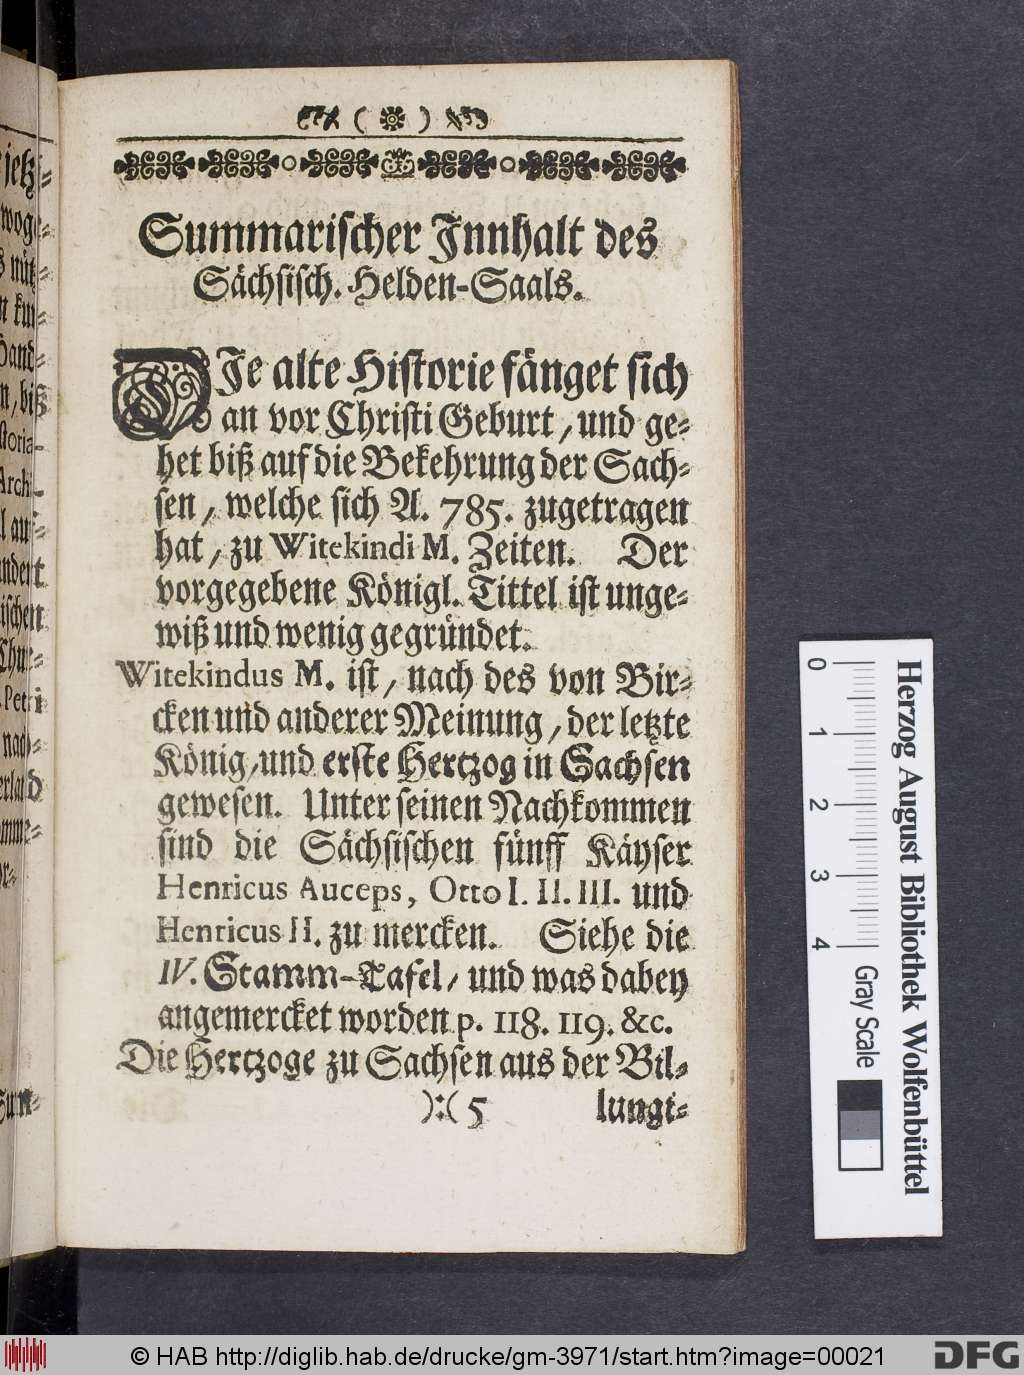 Summarischer Innhalt des
Sächsisch. Helden-Saals.
DIe alte Historie fänget sich
an vor Christi Geburt, und ge-
het biß auf die Bekehrung der Sach-
sen, welche sich A. 785. zugetragen
hat, zu Witekindi M. Zeiten. Der
vorgegebene Königl. Tittel ist unge-
wiß und wenig gegründet.
Witekindus M. ist, nach des von Bir-
cken und anderer Meinung, der letzte
König, und erste Hertzog in Sachsen
gewesen. Unter seinen Nachkommen
sind die Sächsischen fünff Käyser
Henricus Auceps, Otto I. II. III. und
Henricus II. zu mercken. Siehe die
IV. Stamm-Tafel, und was dabey
angemercket worden p. 118. 119. &c.
Die Hertzoge zu Sachsen aus der Bil-
):( 5 lungi-
jetz-
Hand-
Petri
Sum-
0 1 2 3 4
Gray Scale
Herzog August Bibliothek Wolfenbüttel
© HAB http://diglib.hab.de/drucke/gm-3971/start.htm?image=00021
DFG